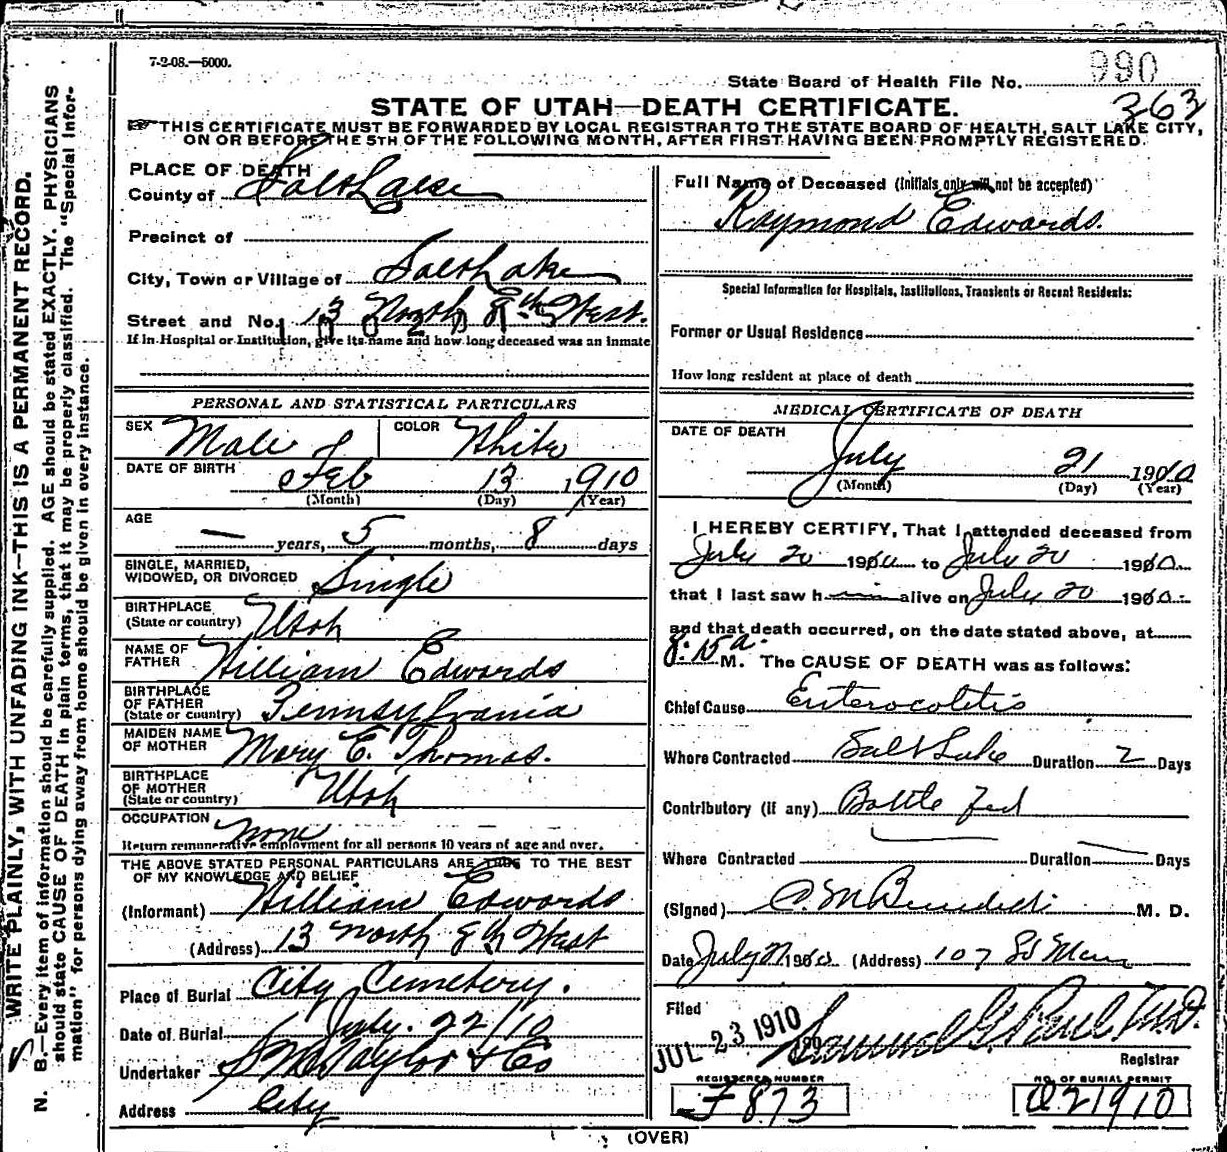 7-2-08.—5000.
State Board of Health File No. 990
363
STATE OF UTAH—DEATH CERTIFICATE.
THIS CERTIFICATE MUST BE FORWARDED BY LOCAL REGISTRAR TO THE STATE BOARD OF HEALTH, SALT LAKE CITY,
ON OR BEFORE THE 5TH OF THE FOLLOWING MONTH, AFTER FIRST HAVING BEEN PROMPTLY REGISTERED.
PLACE OF DEATH
County of Salt Lake
Precinct of
City, Town or Village of Salt Lake
Street and No. 13 North 8th West.
If in Hospital or Institution, give its name and how long deceased was an inmate
PERSONAL AND STATISTICAL PARTICULARS
SEX Male COLOR White
DATE OF BIRTH Feb 13 1910
(Month) (Day) (Year)
AGE
— years, 5 months, 8 days
SINGLE, MARRIED,
WIDOWED, OR DIVORCED Single
BIRTHPLACE
(State or country) Utah
NAME OF
FATHER William Edwards
BIRTHPLACE
OF FATHER
(State or country) Pennsylvania
MAIDEN NAME
OF MOTHER Mary E. Thomas.
BIRTHPLACE
OF MOTHER
(State or country) Utah
OCCUPATION none
Return remunerative employment for all persons 10 years of age and over.
THE ABOVE STATED PERSONAL PARTICULARS ARE TRUE TO THE BEST
OF MY KNOWLEDGE AND BELIEF
(Informant) William Edwards
(Address) 13 North 8th West
Place of Burial City Cemetery.
Date of Burial July. 22/10
Undertaker S M Taylor & Co
Address City
Full Name of Deceased (Initials only will not be accepted)
Raymond Edwards.
Special Information for Hospitals, Institutions, Transients or Recent Residents:
Former or Usual Residence
How long resident at place of death
MEDICAL CERTIFICATE OF DEATH
DATE OF DEATH
July 21 1910
(Month) (Day) (Year)
I HEREBY CERTIFY, That I attended deceased from
July 20 1910 to July 20 1910.
that I last saw him alive on July 20 1910.
and that death occurred, on the date stated above, at
8:15 a. M. The CAUSE OF DEATH was as follows:
Chief Cause Enterocolitis
Where Contracted Salt Lake Duration 2 Days
Contributory (if any) Bottle Fed
Where Contracted Duration Days
(Signed) C. M. Benedict M. D.
Date July 21 1910 (Address) 107 So Main
Filed
JUL 23 1910 Samuel G. Paul M.D.
Registrar
REGISTERED NUMBER NO. OF BURIAL PERMIT
F 873 Q21910
(OVER)
WRITE PLAINLY, WITH UNFADING INK—THIS IS A PERMANENT RECORD.
N. B.—Every item of information should be carefully supplied. AGE should be stated EXACTLY. PHYSICIANS
should state CAUSE OF DEATH in plain terms, that it may be properly classified. The "Special Infor-
mation" for persons dying away from home should be given in every instance.